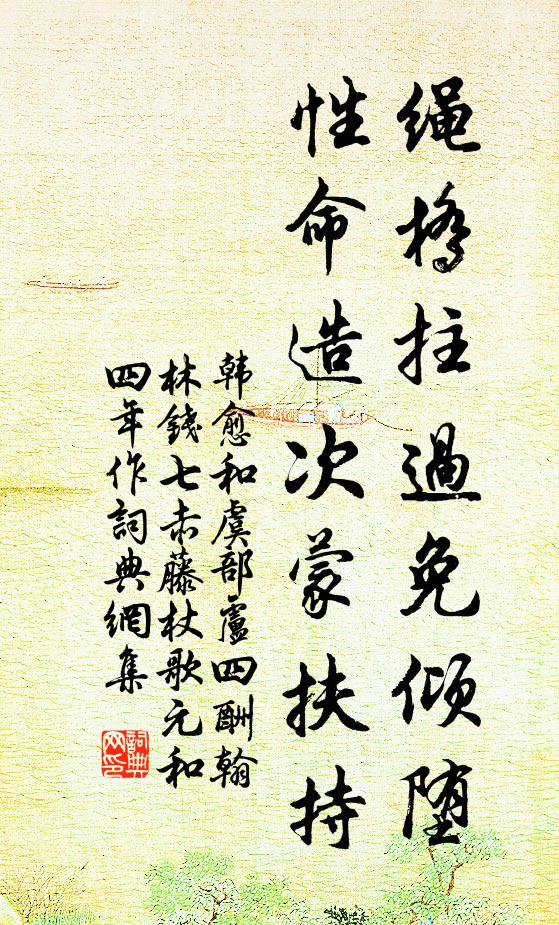 绳橋拄過免倾堕
性命造次蒙扶持
韩愈和虞部盧四酬翰
林錢七赤藤杖歌元和
四年作詞典網集
詞典
网印